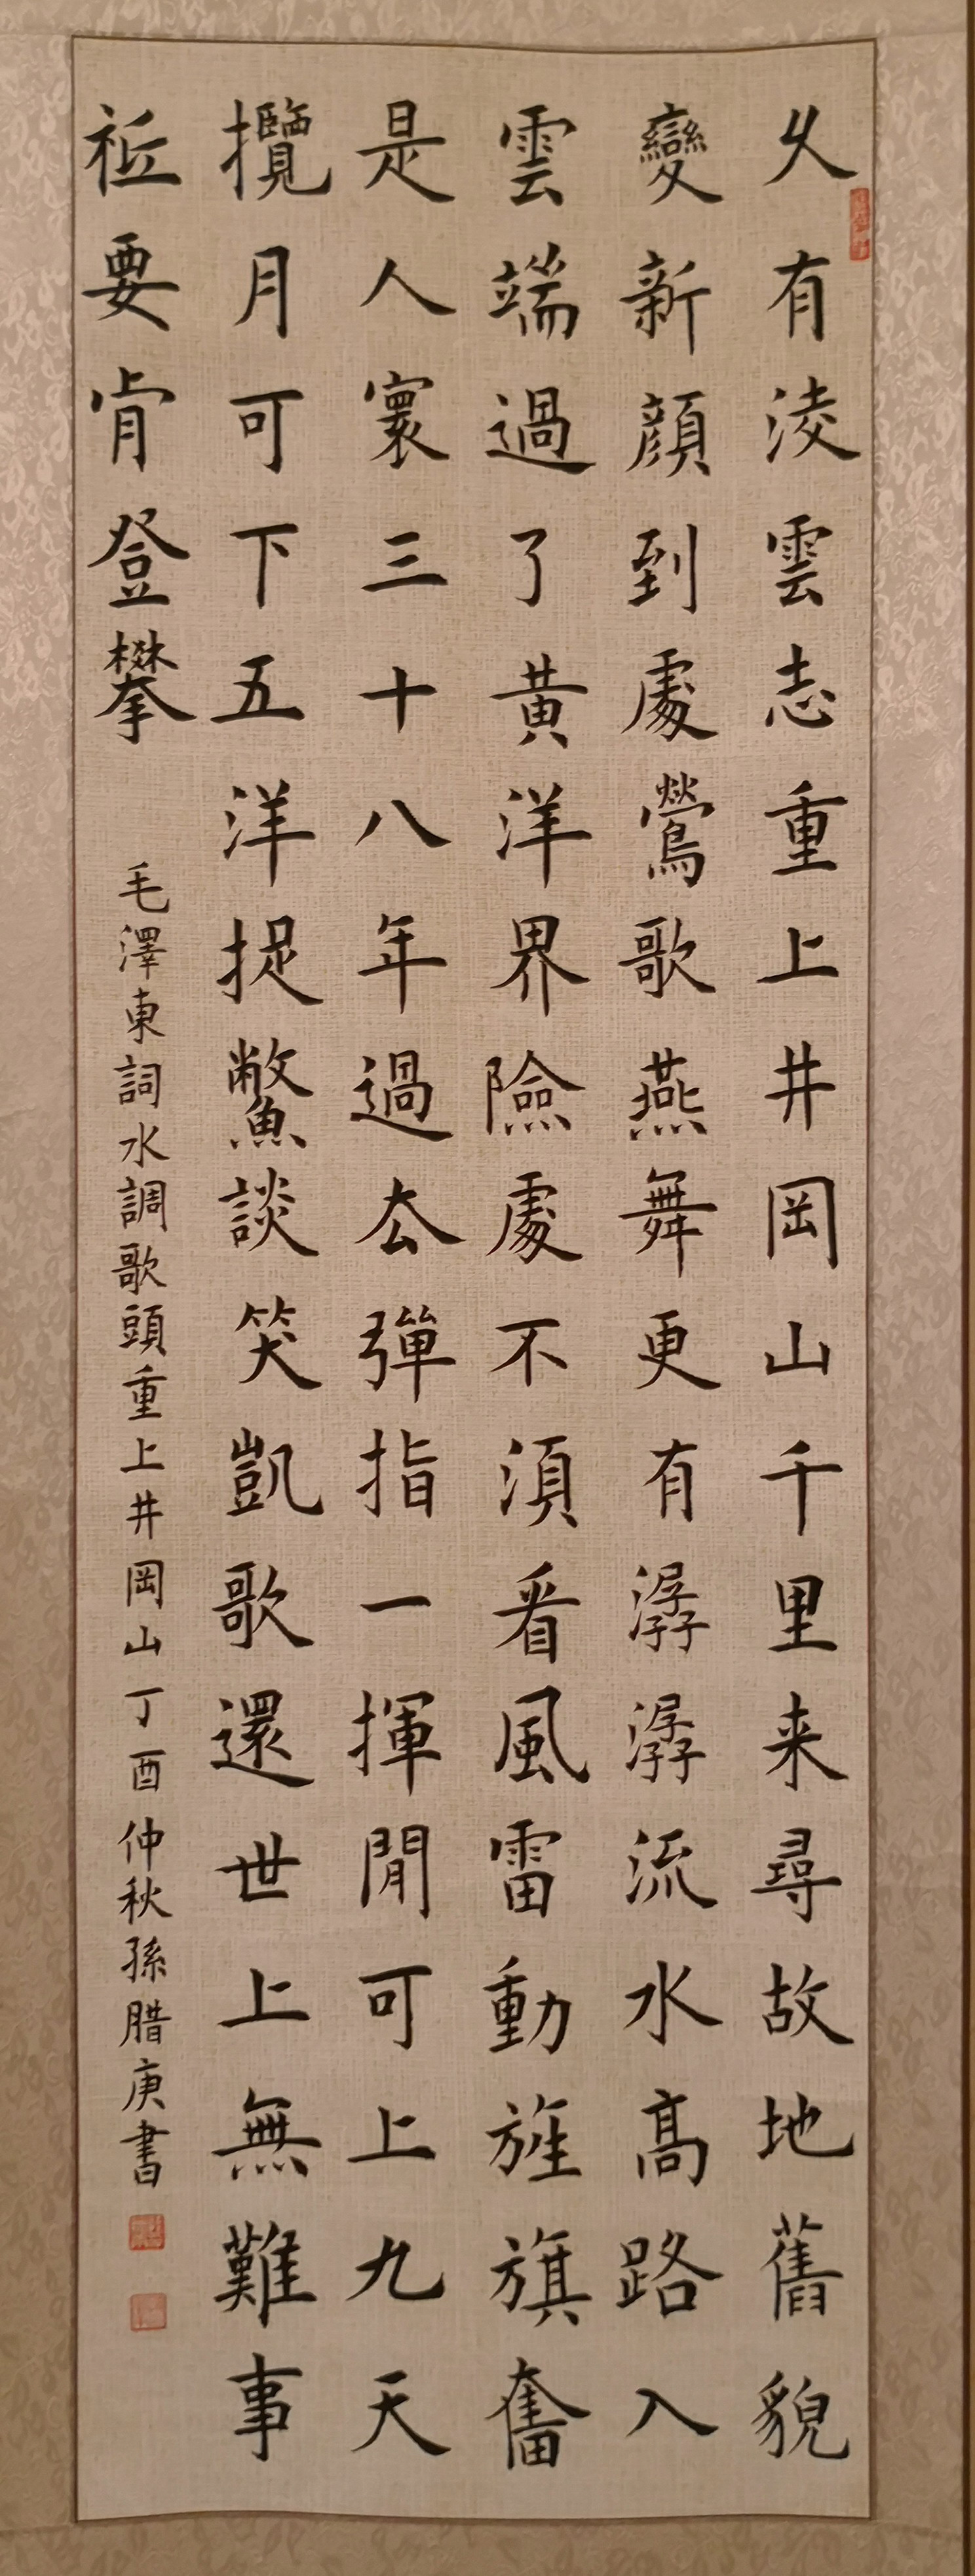 乆有淩雲志重上井岡山千里来尋故地舊貌
變新顔到處鶯歌燕舞更有潺潺流水髙路入
雲端過了黄洋界險處不湏看風雷動旌旗奮
是人寰三十八年過去彈指一揮間可上九天
攬月可下五洋捉鱉談笑凱歌還世上無難事
袛要肯登攀
毛澤東詞水調歌頭重上井岡山丁酉仲秋孫腊庚書